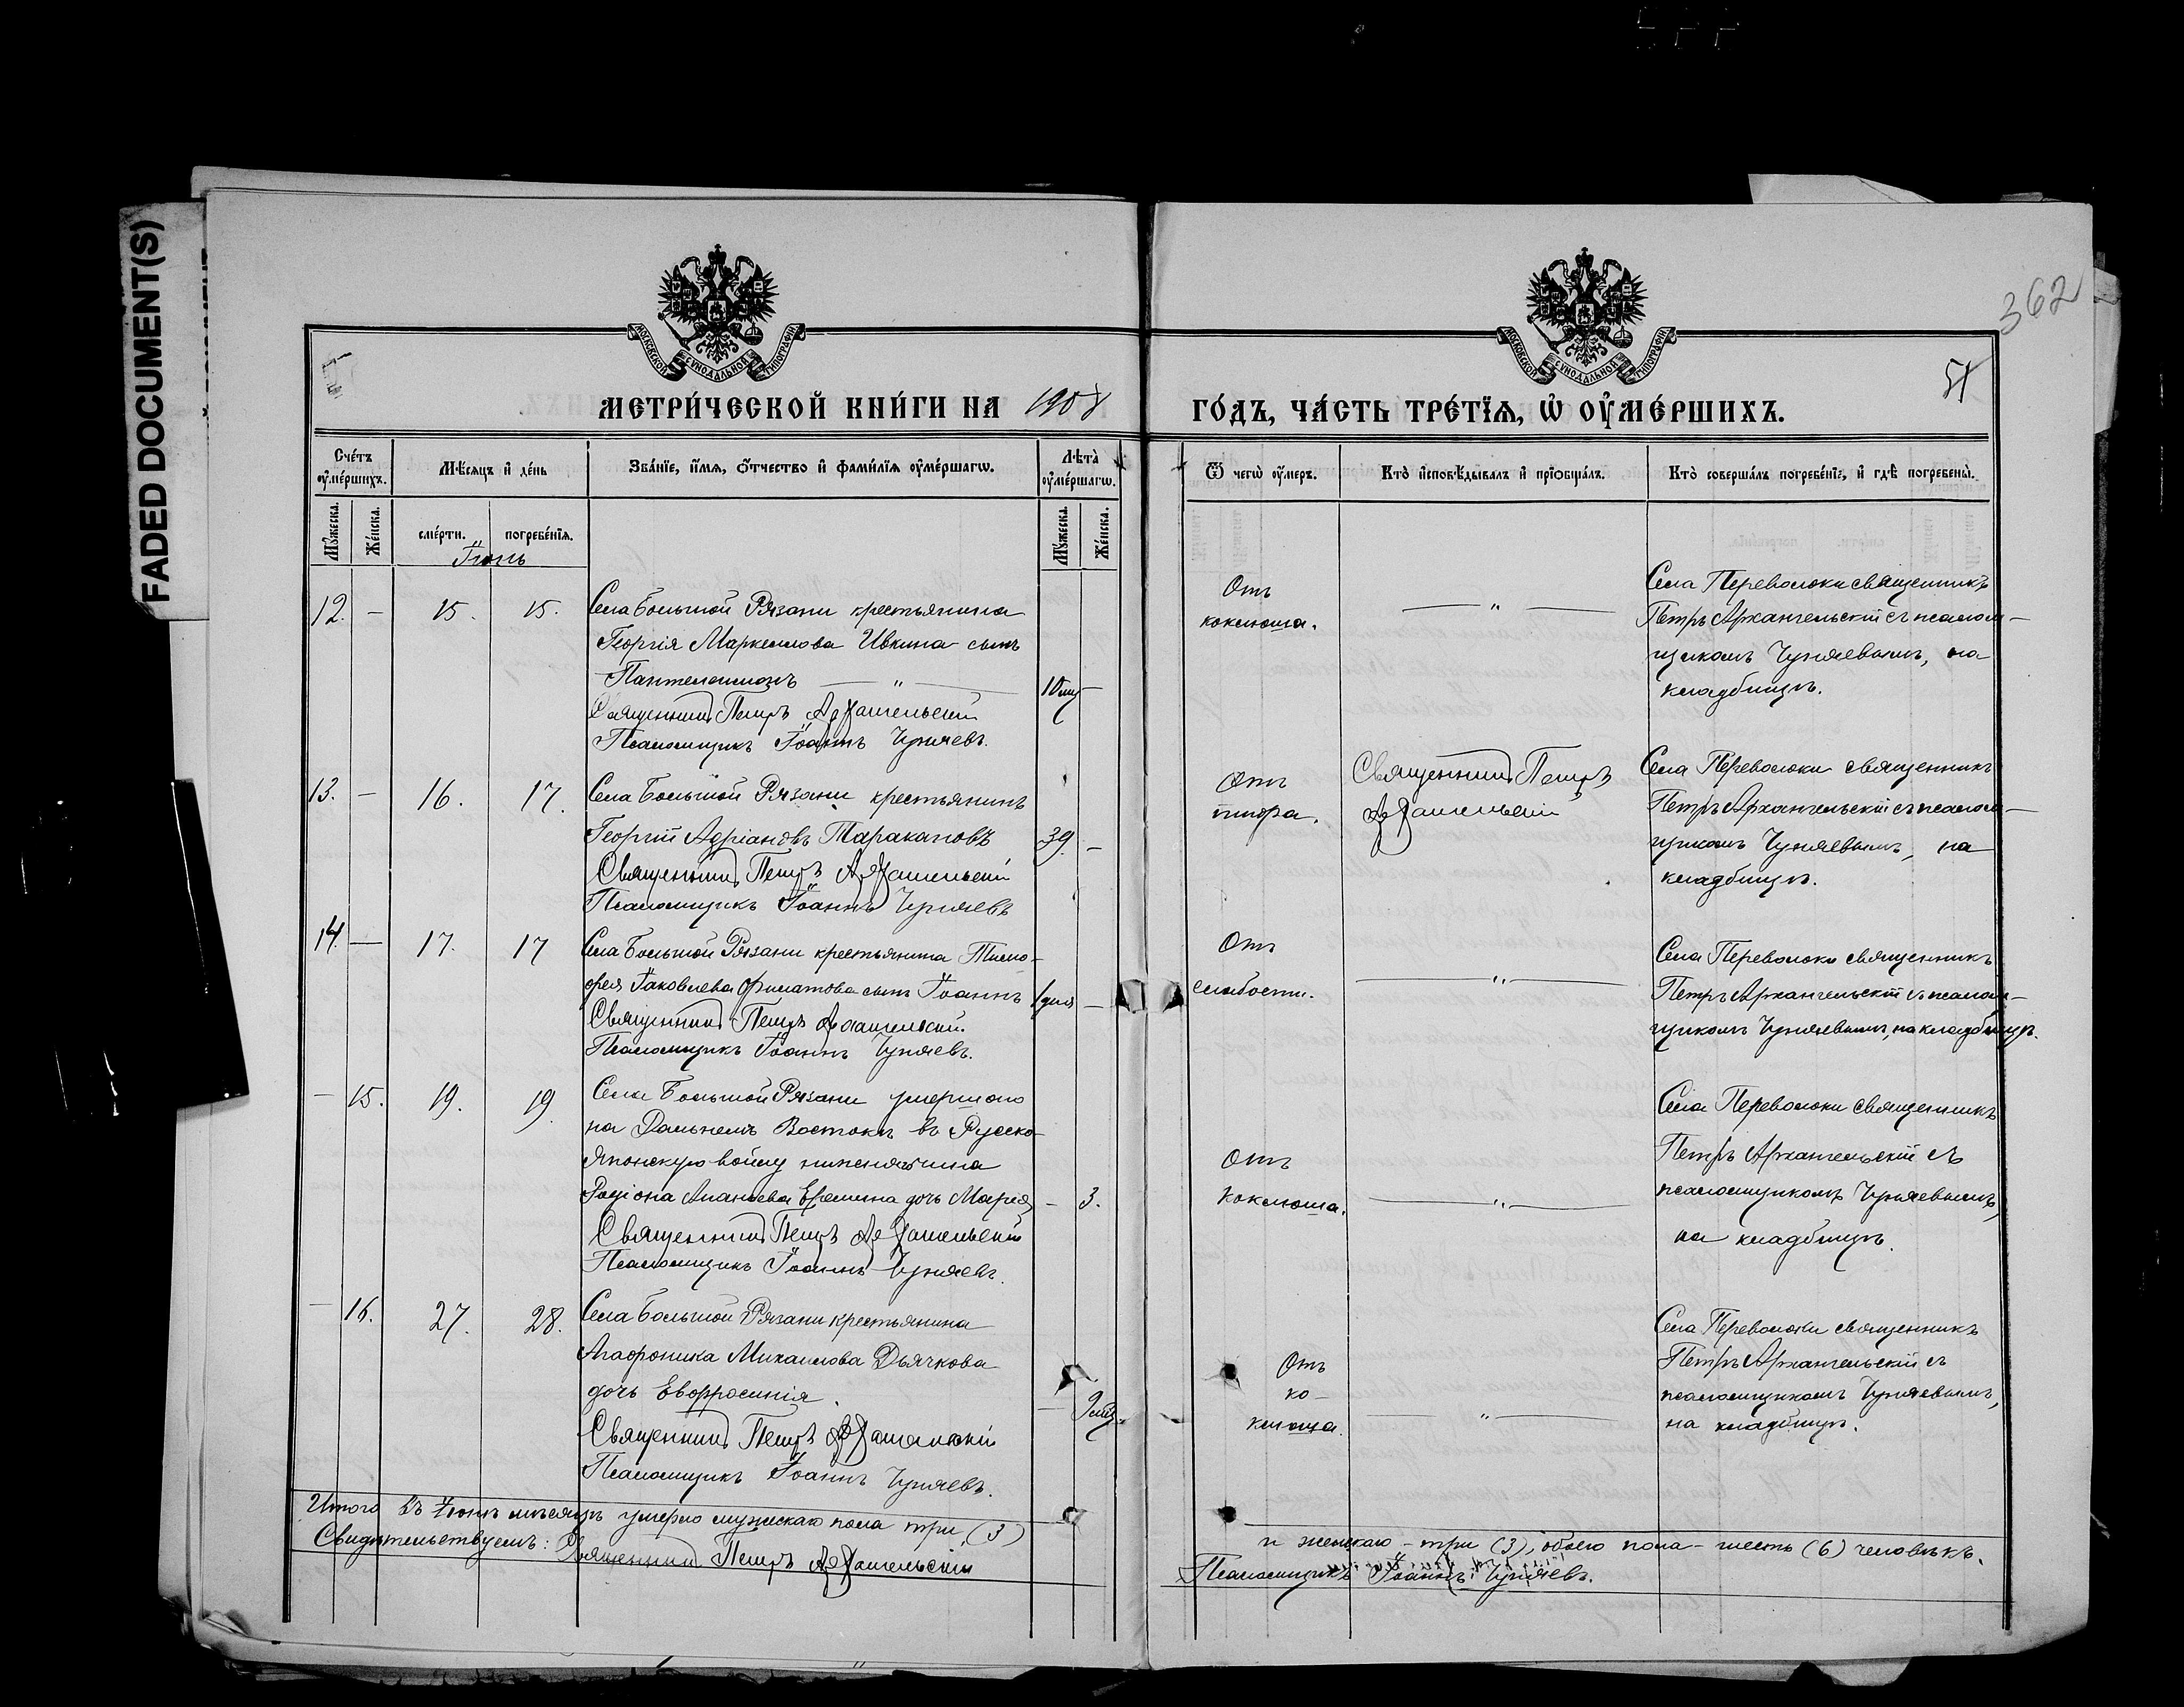 FADED DOCUMENT(S)
362
51
МОСКОВСКОЙ СУНОДАЛЬНОЙ ТИПОГРАФІИ
МОСКОВСКОЙ СУНОДАЛЬНОЙ ТИПОГРАФІИ
МЕТРИ́ЧЕСКОЙ КНИ́ГИ НА 1908
ГО́ДЪ, ЧА́СТЬ ТРЕ́ТЇѦ, Ѡ҆ ОУ҆МЕ́РШИХЪ.
Сче́тъ оу҆ме́ршихъ.
Мѣ́сяцъ и҆ де́нь
Зва́нїе, и҆́мѧ, ѻ҆́тчество и҆ фами́лїѧ оу҆ме́ршагѡ.
Лѣта̀ оу҆ме́ршагѡ.
Ѿ чегѡ̀ оу҆́меръ.
Кто̀ и҆сповѣ́дывалъ и҆ прїѡбща́лъ.
Кто̀ соверша́лъ погребе́нїе, и҆ гдѣ̀ погребены̀.
Мꙋ́жеска.
Же́нска.
сме́рти.
погребе́нїѧ.
Мꙋ́жеска.
Же́нска.
Іюнь
12. — 15. 15. Села Большой Рязани крестьянина
Георгія Маркеллова Ивкина сынъ
Пантелеимонъ — " — 10 мц —
Священникъ Петръ Архангельскій
Псаломщикъ Іоаннъ Чуняевъ.
Отъ
коклюша.
— " —
Села Переволоки священникъ
Петръ Архангельскій съ псалом-
щикомъ Чуняевымъ, на
кладбищѣ.
13. — 16. 17. Села Большой Рязани крестьянинъ
Георгій Адріановъ Таракановъ 39. —
Священникъ Петръ Архангельскій
Псаломщикъ Іоаннъ Чуняевъ
Отъ
тифа.
Священникъ Петръ
Архангельскій
Села Переволоки священникъ
Петръ Архангельскій съ псалом-
щикомъ Чуняевымъ, на
кладбищѣ.
14. — 17. 17 Села Большой Рязани крестьянина Тимо-
фея Іаковлева Филатова сынъ Іоаннъ 1 дня —
Священникъ Петръ Архангельскій.
Псаломщикъ Іоаннъ Чуняевъ.
Отъ
слабости.
— " —
Села Переволоки священникъ
Петръ Архангельскій съ псалом-
щикомъ Чуняевымъ, на кладбищѣ.
— 15. 19. 19. Села Большой Рязани умершаго
на Дальнемъ Востокѣ въ Русско-
Японскую войну нижняго чина
Родіона Ананьева Еремина дочь Марія — 3.
Священникъ Петръ Архангельскій
Псаломщикъ Іоаннъ Чуняевъ.
Отъ
коклюша.
— " —
Села Переволоки священникъ
Петръ Архангельскій съ
псаломщикомъ Чуняевымъ,
на кладбищѣ.
— 16. 27. 28. Села Большой Рязани крестьянина
Агафоника Михаилова Дьячкова
дочь Евфросинія. — 9 мц.
Священникъ Петръ Архангельскій
Псаломщикъ Іоаннъ Чуняевъ.
Отъ
ко-
клюша.
— " —
Села Переволоки священникъ
Петръ Архангельскій съ
псаломщикомъ Чуняевымъ,
на кладбищѣ.
Итого въ Іюнѣ мѣсяцѣ умерло мужскаго пола три (3)
и женскаго — три (3), обоего пола — шесть (6) человѣкъ.
Свидѣтельствуемъ: Священникъ Петръ Архангельскій
Псаломщикъ Іоаннъ Чуняевъ.